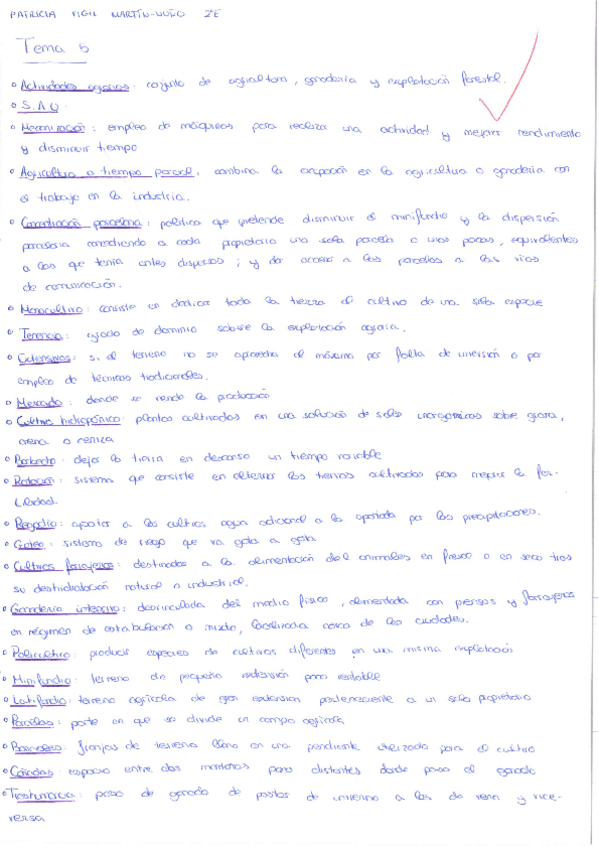 PATRICIA VIGIL MARTÍN-NUÑO 2ºE
Tema 5
• Actividades agrarias: conjunto de agricultura, ganadería y explotación forestal.
• S.A.U.
• Mecanización: empleo de máquinas para realizar una actividad y mejorar rendimiento
y disminuir tiempo
• Agricultura a tiempo parcial, combina la ocupación en la agricultura o ganadería con
el trabajo en la industria.
• Concentración parcelaria: política que pretende disminuir el minifundio y la dispersión
parcelaria concediendo a cada propietario una sola parcela o unas pocas, equivalentes
a las que tenía antes dispersas; y dar acceso a las parcelas a las vías
de comunicación.
• Monocultivo: consiste en dedicar toda la tierra al cultivo de una sola especie
• Tenencia: grado de dominio sobre la explotación agraria.
• Extensivos: si el terreno no se aprovecha al máximo por falta de inversión o por
empleo de técnicas tradicionales.
• Mercado: donde se vende la producción
• Cultivo hidropónico: plantas cultivadas en una solución de sales inorgánicas sobre grava,
arena o ceniza
• Barbecho: dejar la tierra en descanso un tiempo variable
• Rotación: sistema que consiste en alternar las tierras cultivadas para mejorar la fer-
tilidad.
• Regadío: aportar a los cultivos agua adicional a la aportada por las precipitaciones.
• Goteo: sistema de riego que va gota a gota
• Cultivos forrajeros: destinados a la alimentación del animales en fresco o en seco tras
su deshidratación natural o industrial.
• Ganadería intensiva: desvinculada del medio físico, alimentada con piensos y forrajeros
en régimen de estabulación o mixto, localizada cerca de las ciudades.
• Policultivo: producir especies de cultivos diferentes en una misma explotación
• Minifundio: terreno de pequeña extensión poco rentable
• Latifundio: terreno agrícola de gran extensión perteneciente a un solo propietario
• Parcelas: parte en que se divide un campo agrícola
• Bancales: franjas de terreno llano en una pendiente utilizado para el cultivo
• Cañadas: espacio entre dos montañas poco distantes donde pasa el ganado
• Trashumancia: paso de ganado de pastos de invierno a los de verano y vice-
versa